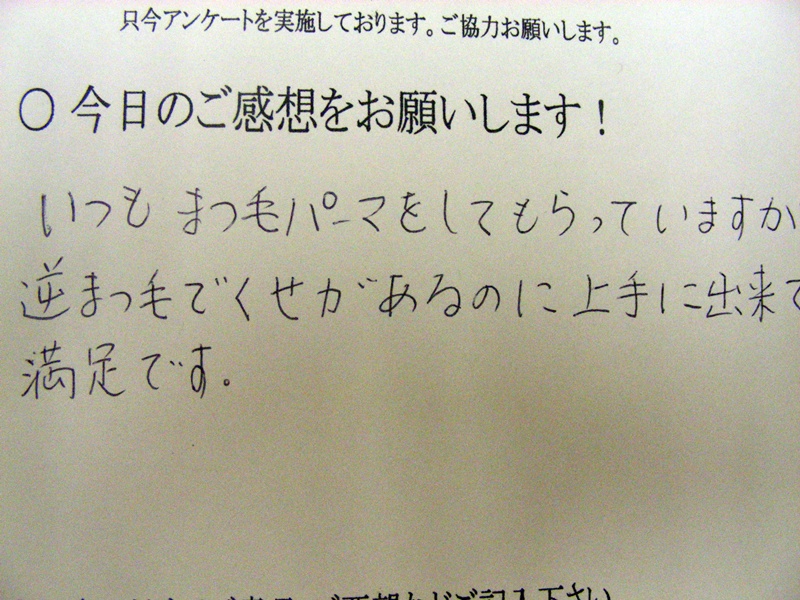 只今アンケートを実施しております。ご協力お願いします。
○ 今日のご感想をお願いします！
いつも まつ毛パーマをしてもらっていますか
逆まつ毛でくせがあるのに上手に出来て
満足です。
ご記入下さい